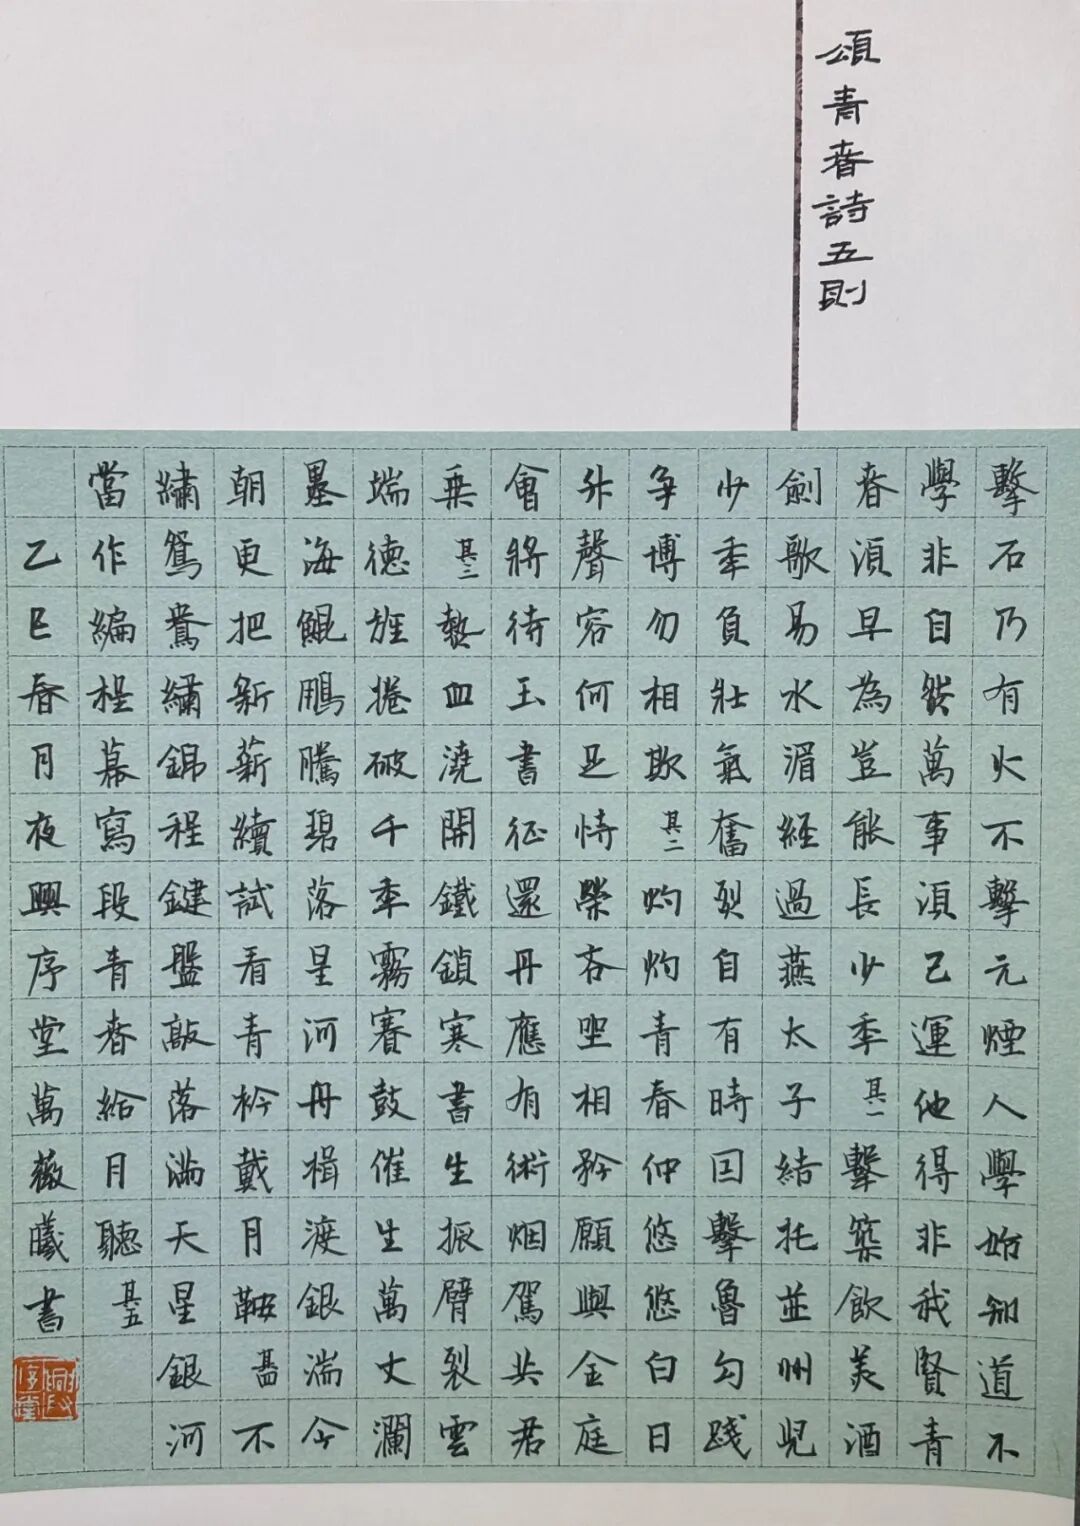 頌青春詩五則
擊石乃有火不擊元煙人學始知道不
學非自然萬事須己運他得非我賢青
春須早為豈能長少年其一擊築飲美酒
劍歌易水湄經過燕太子結托並州兒
少年負壯氣奮烈自有時因擊魯勾踐
争博勿相欺其二灼灼青春仲悠悠白日
升聲容何足恃榮吝坐相矜願與金庭
會將待玉書征還丹應有術烟駕共君
乘其三熱血澆開鐵鎖寒書生振臂裂雲
端德旌捲破千年霧賽鼓催生萬丈瀾
墨海鯤鵬騰碧落星河舟楫渡銀湍今
朝更把新薪續試看青衿戴月鞍其四不
繡鴛鴦繡錦程鍵盤敲落滿天星銀河
當作編程幕寫段青春給月聽其五
乙巳春月夜興序堂萬薇曦書